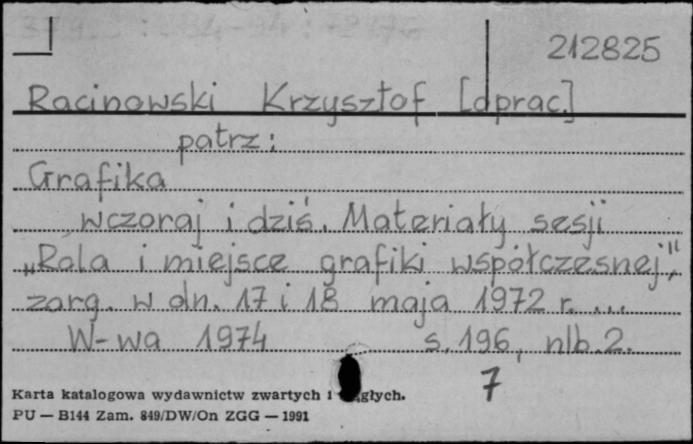 212825
Racinowski Krzysztof [oprac.]
patrz:
Grafika
wczoraj i dziś. Materiały sesji
„Rola i miejsce grafiki współczesnej",
zorg. w dn. 17 i 18 maja 1972 r. ...
W-wa 1974 s. 196, nlb. 2.
7
Karta katalogowa wydawnictw zwartych i
PU — B144 Zam. 849/DW/On ZGG — 1991